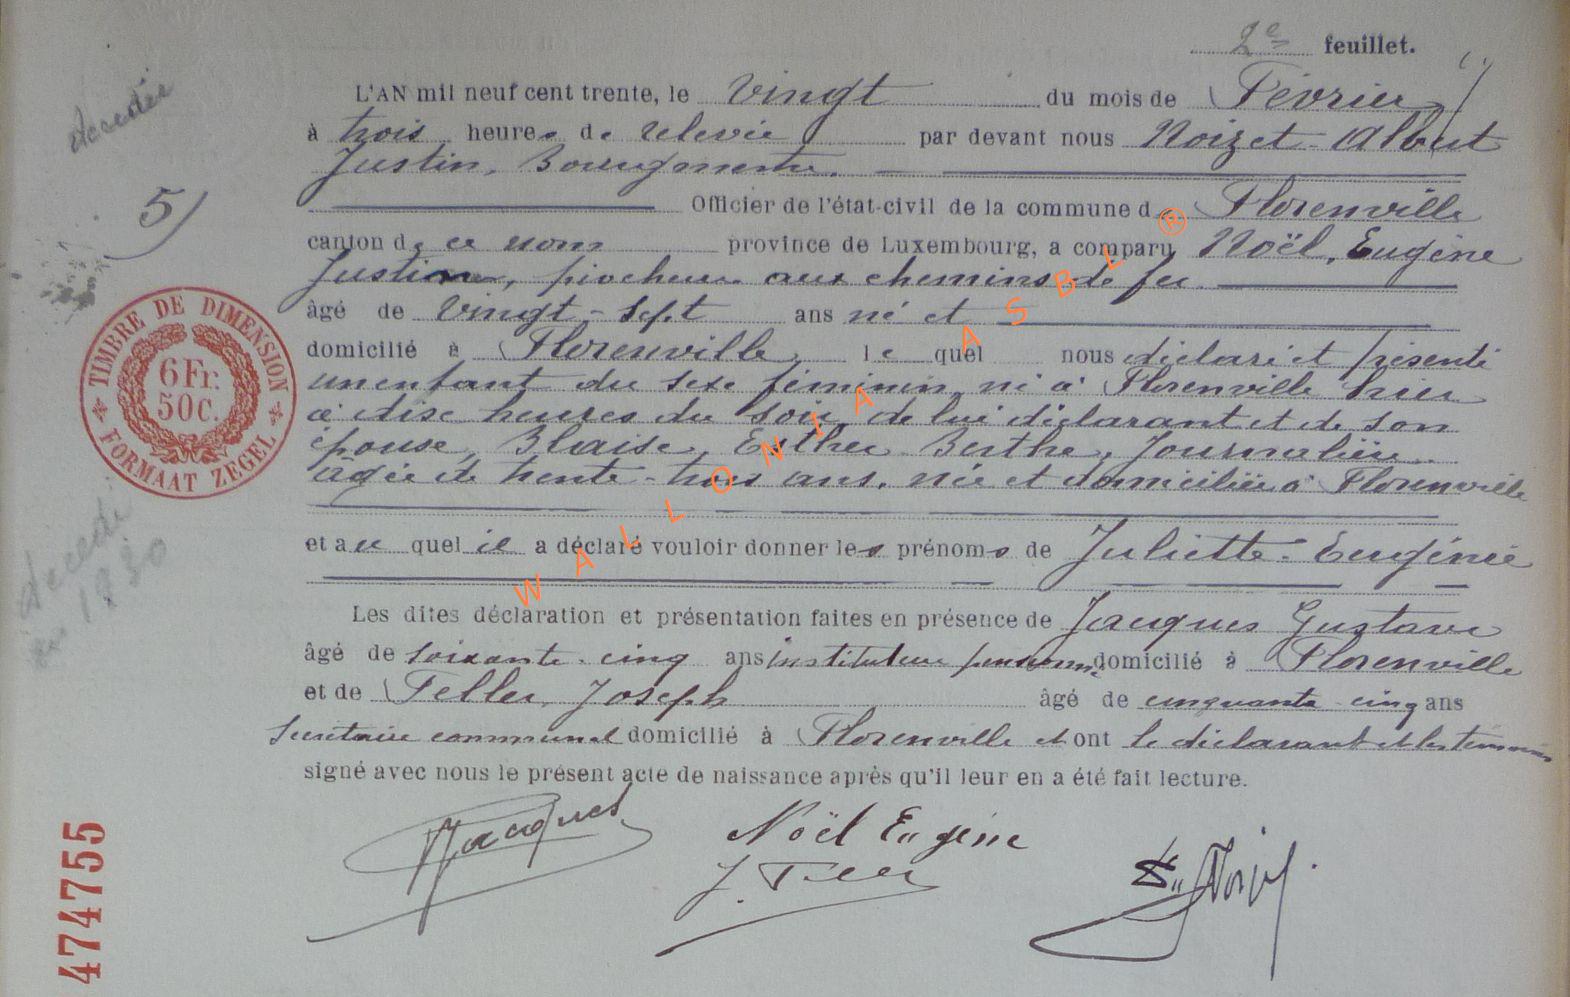 2e feuillet.
décédée
L'AN mil neuf cent trente, le Vingt du mois de Février
à trois heures de relevée par devant nous Noizet Albert
Justin, Bourgmestre.
5)
Officier de l'état-civil de la commune d Florenville
canton de ce nom province de Luxembourg, a comparu Noël, Eugène
Justin, piocheur aux chemins de fer
âgé de Vingt-sept ans né et
domicilié à Florenville, lequel nous déclaré et présenté
un enfant du sexe féminin, né à Florenville hier
à dix heures du soir, de lui déclarant et de son
épouse, Blaise, Esther Berthe, Journalière
agée de trente-trois ans, née et domiciliée à Florenville
et au quel il a déclaré vouloir donner les prénoms de Juliette-Eugénie
Les dites déclaration et présentation faites en présence de Jacques Gustave
âgé de soixante-cinq ans instituteur pensionné domicilié à Florenville
et de Feller, Joseph âgé de cinquante-cinq ans
secrétaire communal domicilié à Florenville et ont le déclarant et les témoins
signé avec nous le présent acte de naissance après qu'il leur en a été fait lecture.
TIMBRE DE DIMENSION
6 Fr.
50 C.
FORMAAT ZEGEL
décédé
en 1930
WALLONIA ASBL ®
474755
GJacques
Noël Eugène
J. Feller